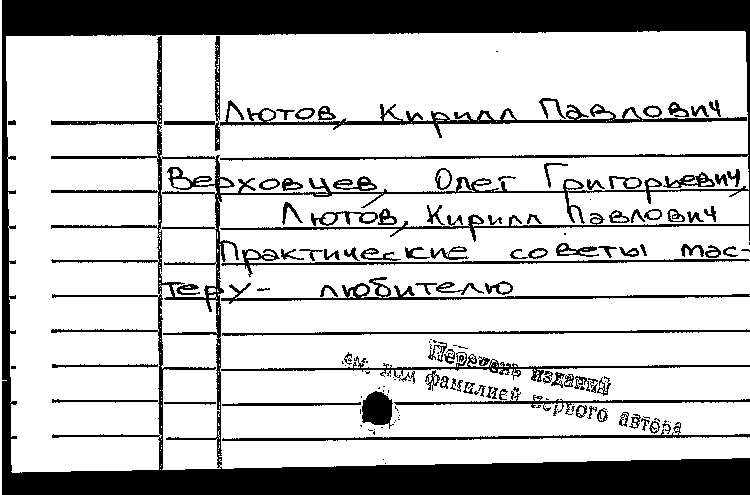 Лютов, Кирилл Павлович
Верховцев, Олег Григорьевич,
Лютов, Кирилл Павлович
Практические советы мас-
теру- любителю
Перечень изданий
см. под фамилией первого автора